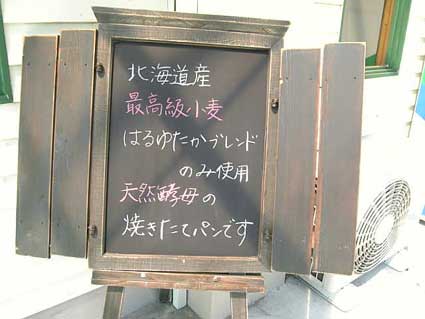 北海道産
最高級小麦
はるゆたかブレンド
のみ使用
天然酵母の
焼きたてパンです